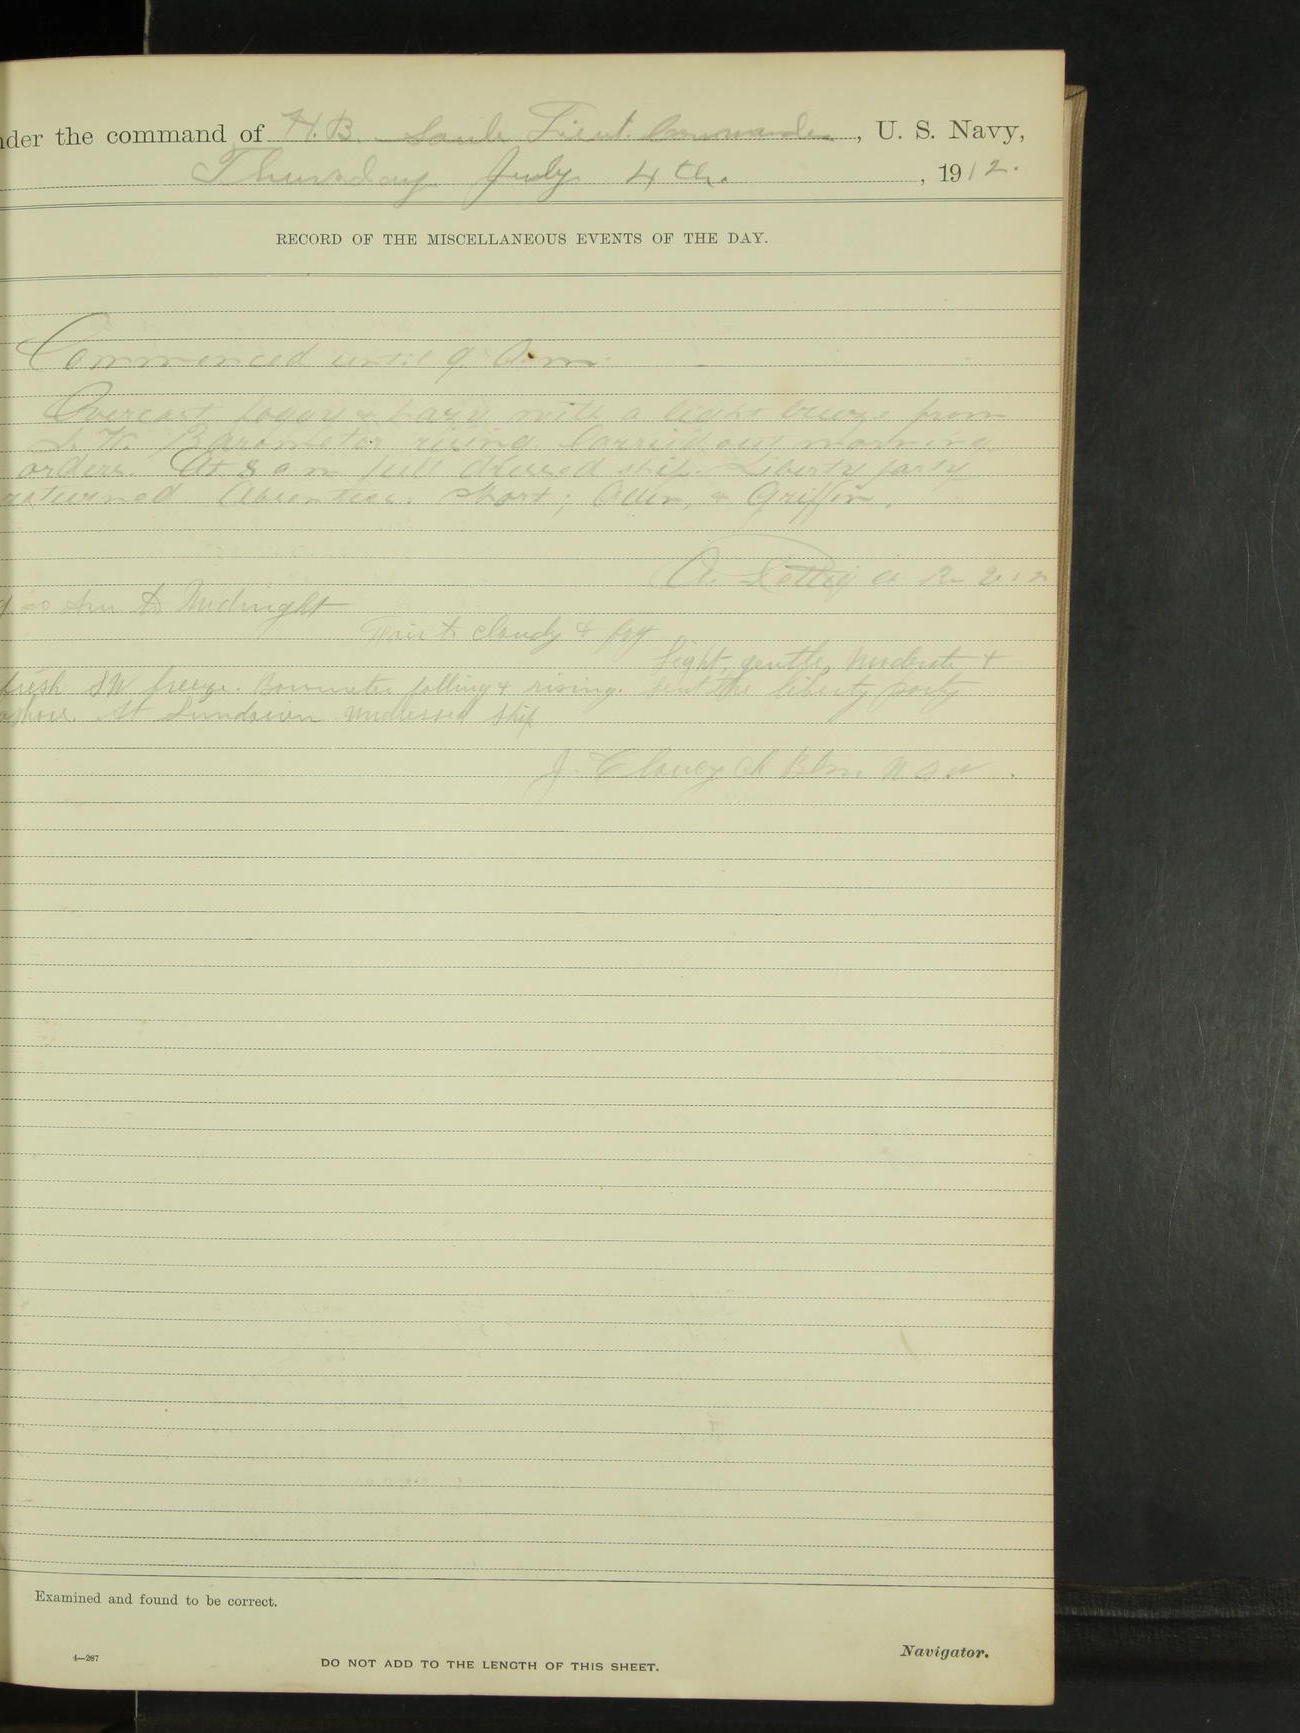 nder the command of H. B. Soule Lieut. Commander, U. S. Navy,
Thursday July 4th. , 1912.
RECORD OF THE MISCELLANEOUS EVENTS OF THE DAY.
Commenced until 9 a.m.
Overcast foggy & hazy with a light breeze from
Barometer rising. Carried out morning
orders. At 8 a m full dressed ship. Liberty party
returned. Absentees: Short; Allen, & Griffin.
to Midnight
Fair to cloudy & fog
Light, gentle, moderate &
fresh SW breeze. Barometer falling & rising. Sent the liberty party
ashore. At Sundown undressed ship
J. Clancy Ch Btsn U S N.
Examined and found to be correct.
4—287
DO NOT ADD TO THE LENGTH OF THIS SHEET.
Navigator.